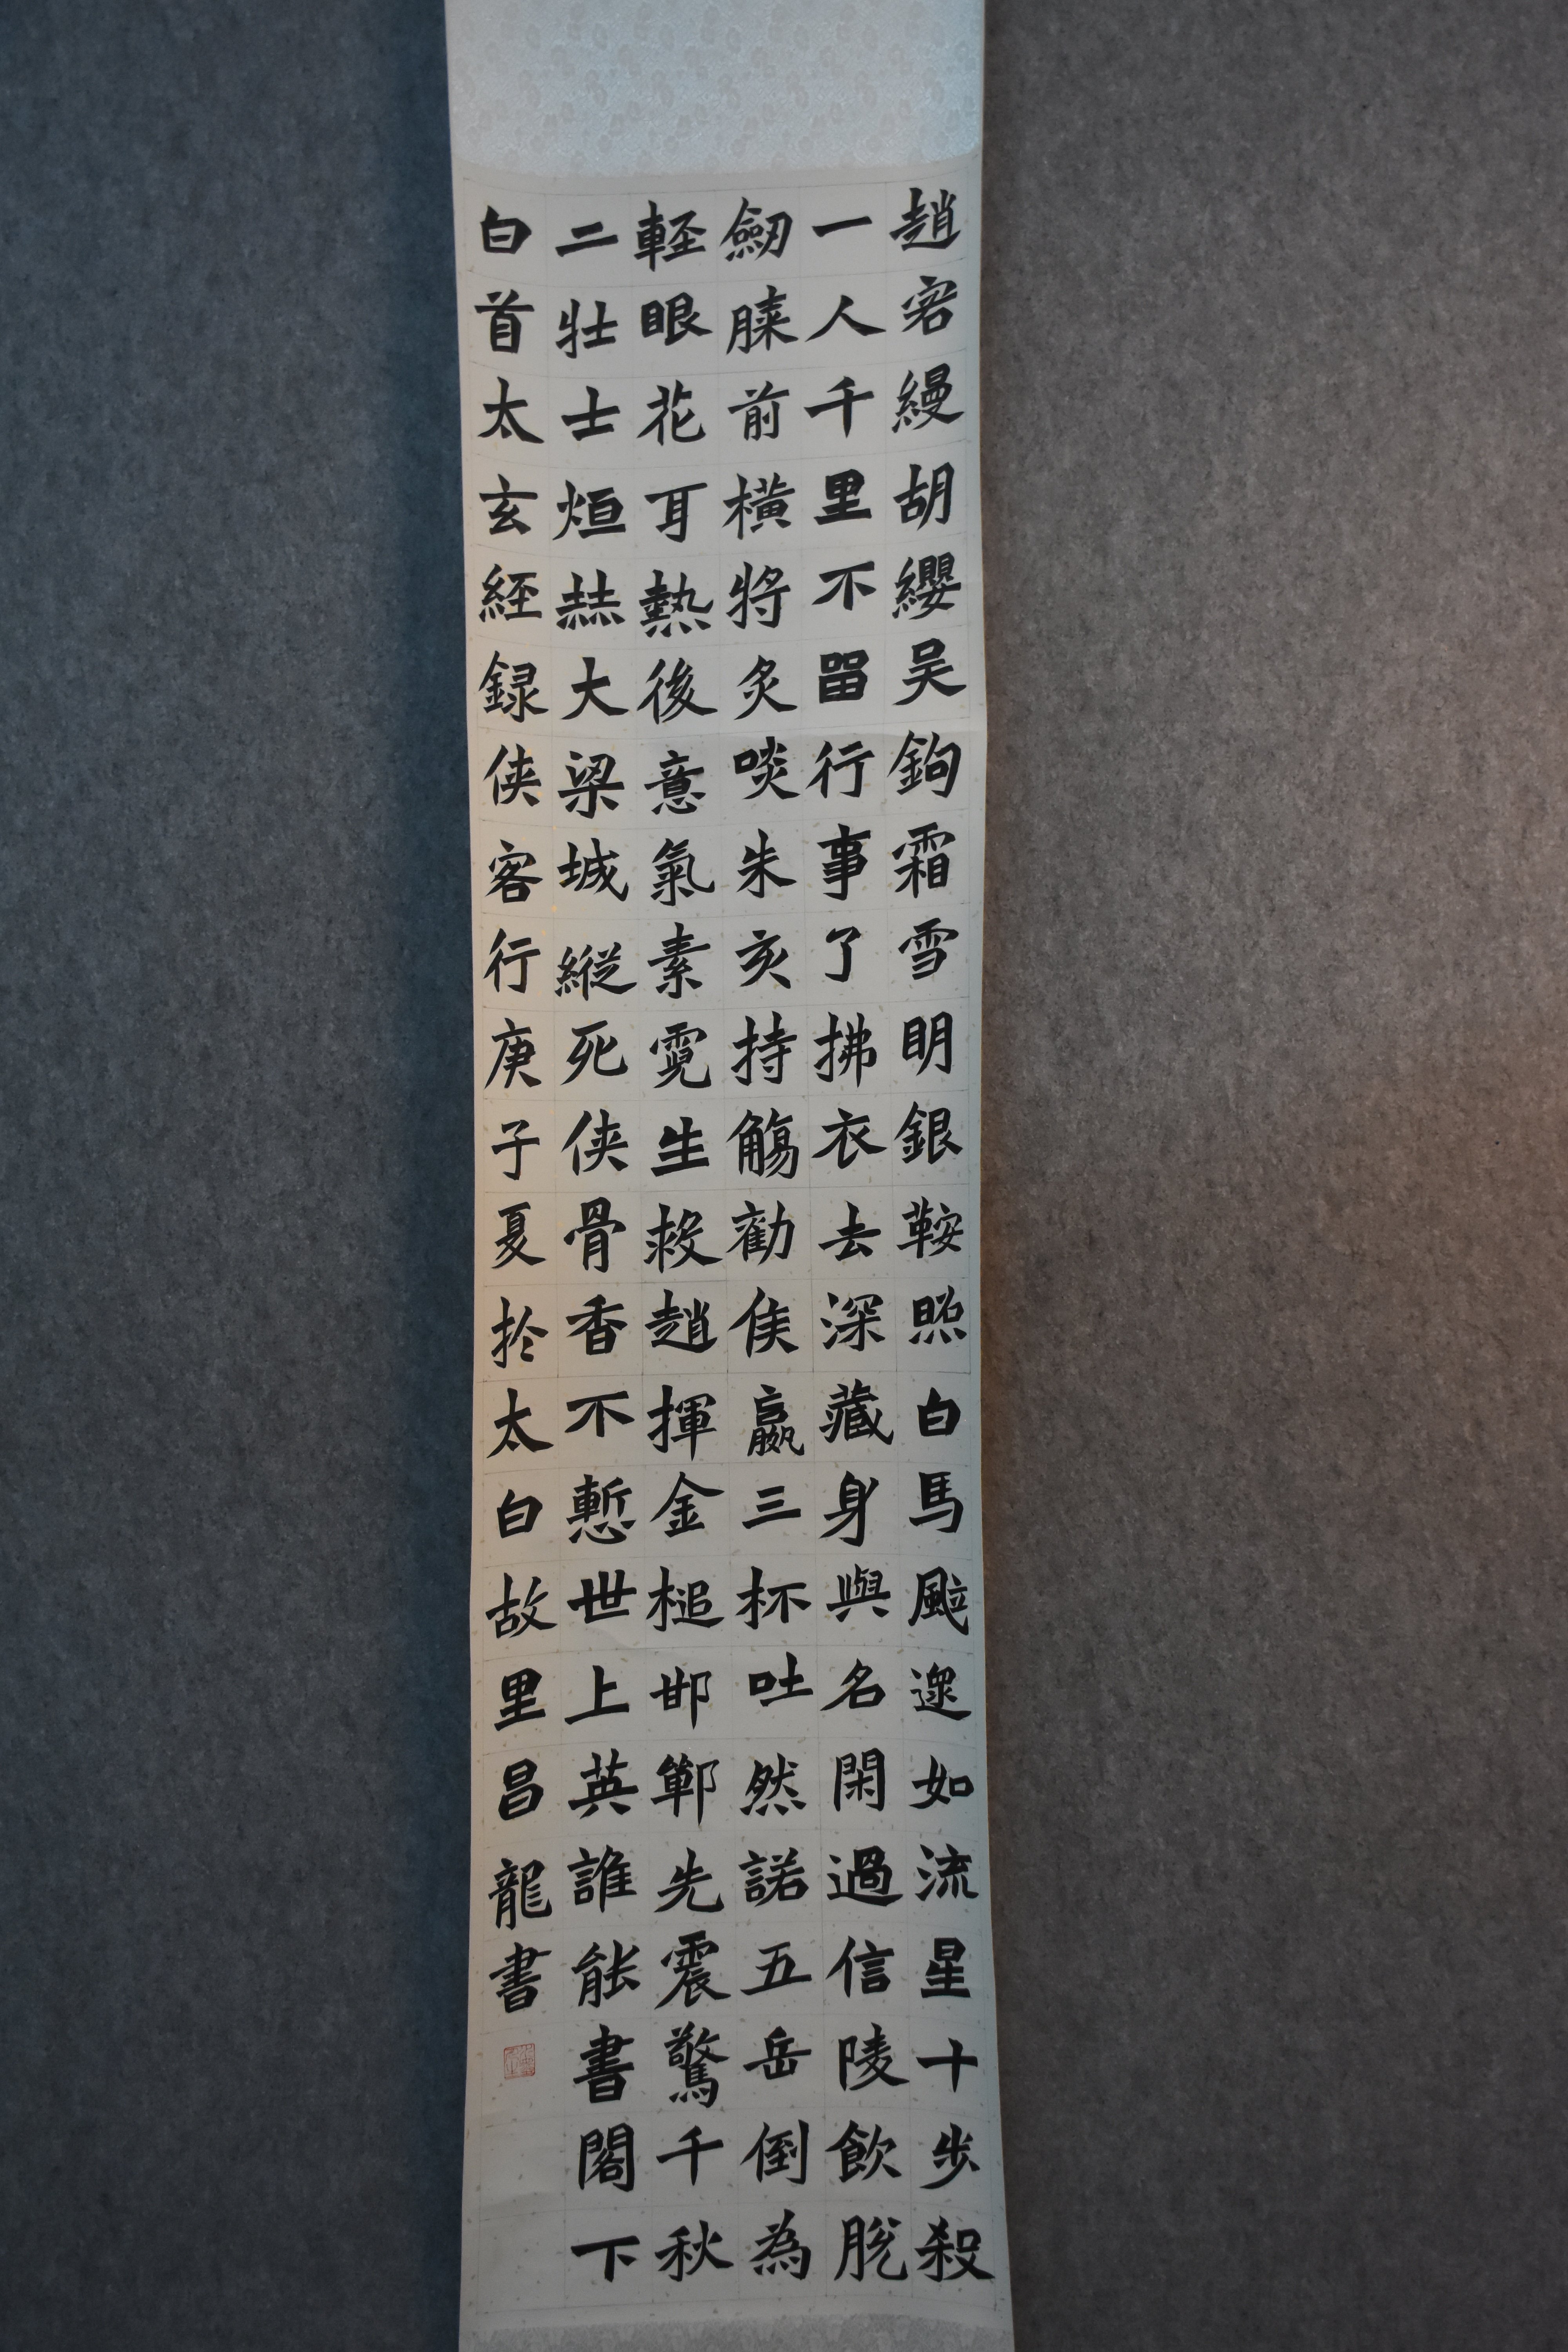 趙客縵胡纓吴鉤霜雪明銀鞍照白馬颯遝如流星十步殺
一人千里不留行事了拂衣去深藏身與名閑過信陵飲脫
劒膝前橫將炙啖朱亥持觴勸侯嬴三杯吐然諾五岳倒為
輕眼花耳熱後意氣素霓生救趙揮金槌邯鄲先震驚千秋
二壯士烜赫大梁城縱死俠骨香不慙世上英誰能書閣下
白首太玄經録俠客行庚子夏於太白故里昌龍書